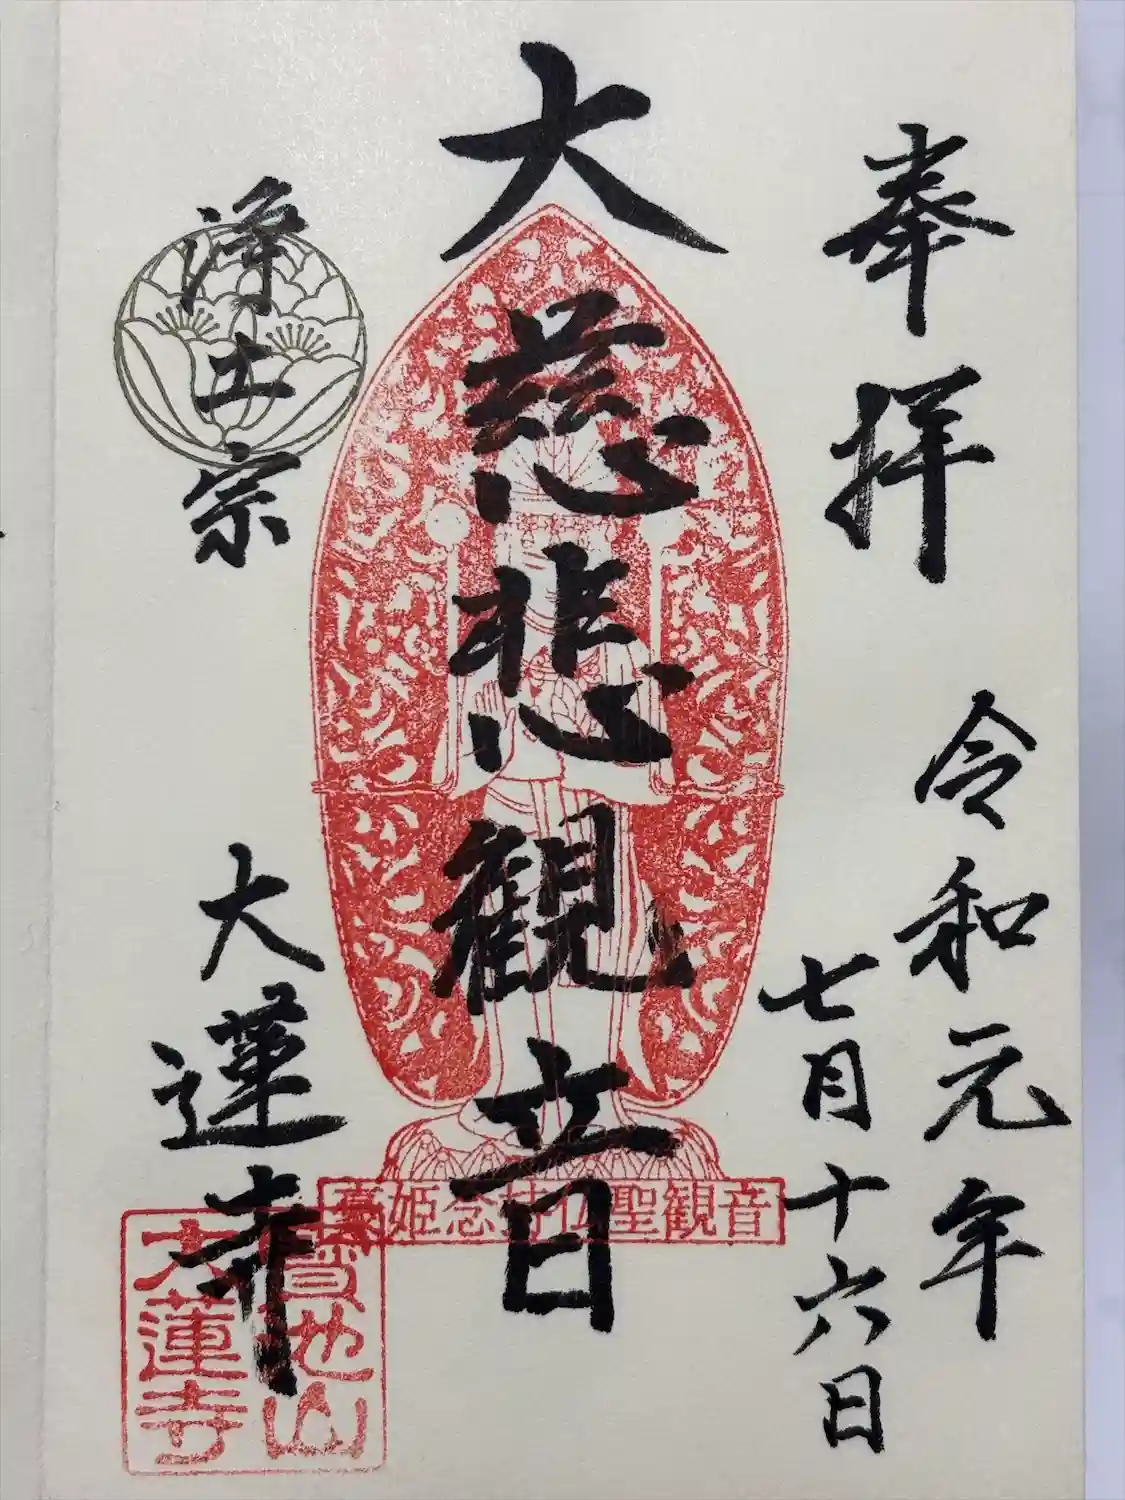 奉拝
令和元年
七月十六日
大慈悲観音
浄土宗
大蓮寺
姫念持仏聖観音
寶池山
大蓮寺